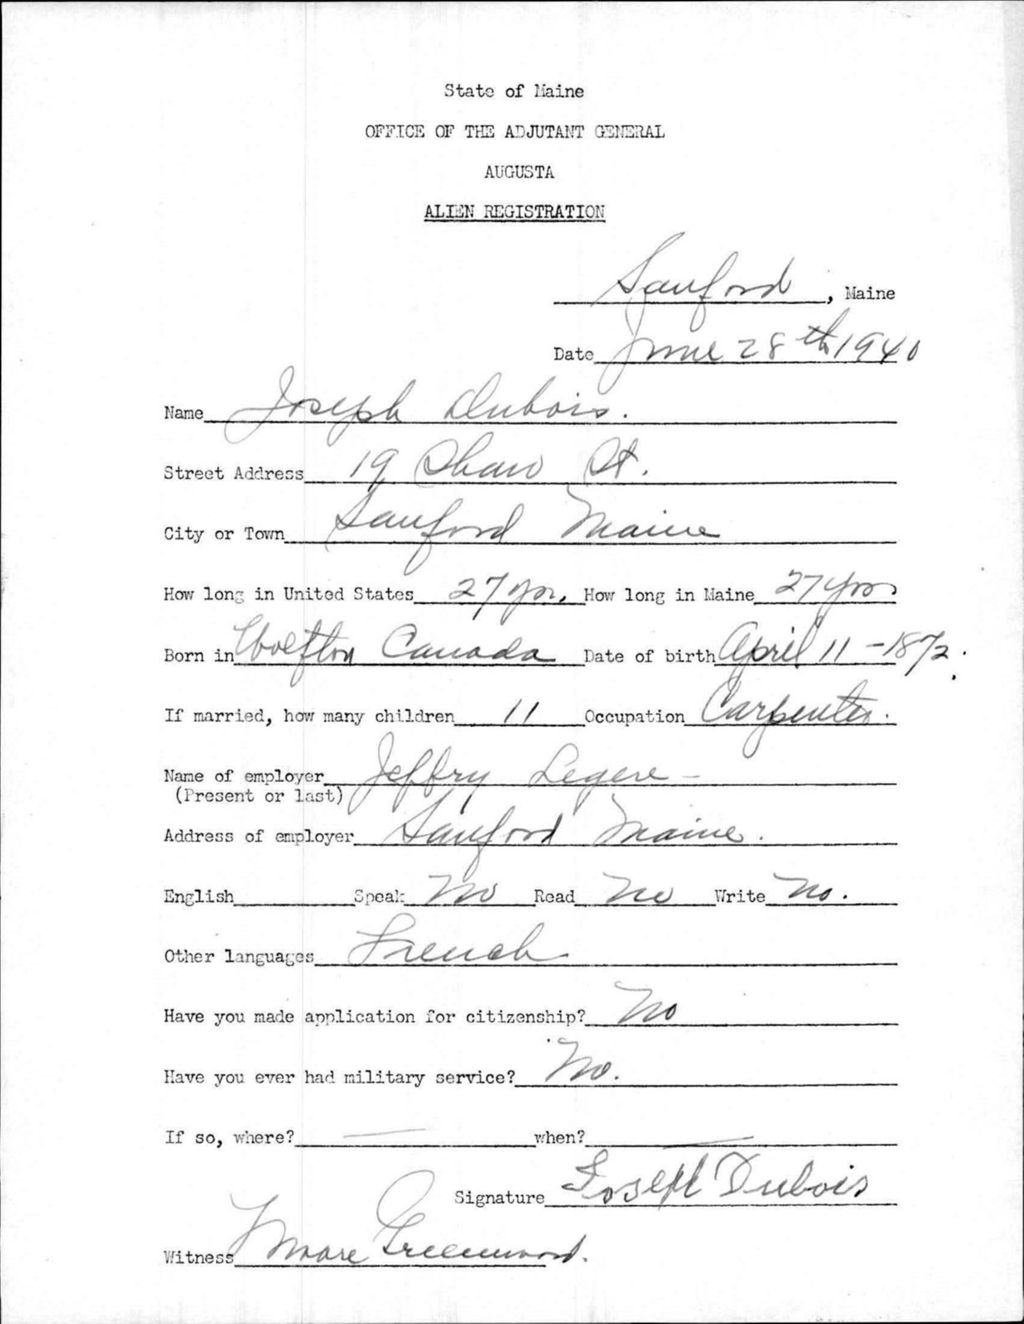 State of Maine
OFFICE OF THE ADJUTANT GENERAL
AUGUSTA
ALIEN REGISTRATION
Sanford, Maine
Date June 28th 1940
Name Joseph Dubois.
Street Address 19 Shaw St.
City or Town Sanford Maine
How long in United States 27 yrs. How long in Maine 27 yrs
Born in Canada Date of birth April 11 - 1872.
If married, how many children 11 Occupation Carpenter.
Name of employer Jeffry Legere -
(Present or last)
Address of employer Sanford Maine.
English Speak No Read No Write No.
Other languages French
Have you made application for citizenship? No
Have you ever had military service? No.
If so, where? — when? —
Signature Joseph Dubois
Witness Greenwood.